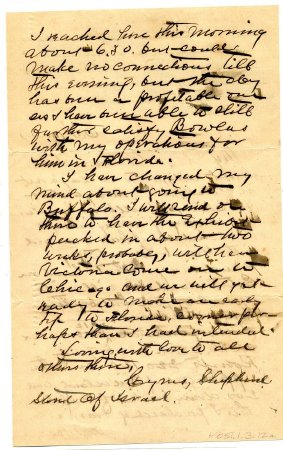 I reached here this Morning
about 6:30. but could
make no connections till
this evening, but the day
has been a profitable one
as I have been able to still
further satisfy Bowles
with my operations for
him in Florida.
I have changed my
mind about going to
Buffalo. I will send on
there to have the Exhibit
packed in about two
weeks, probably, will have
Victoria come on to
Chicago and we will get
ready to make an early
trip to Florida, sooner per-
haps than I had intended.
Loving with love to all
Cyrus, Shepherd
Stone Of Israel.